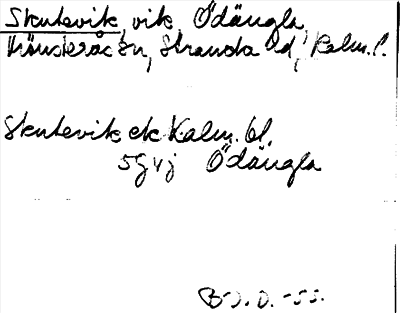 Skutevik, vik, Ödängla,
Mönsterås sn, Stranda hd, Kalm. l.
Skutevik ek Kalm. bl.
5g vj Ödängla
B-J. O. -55.